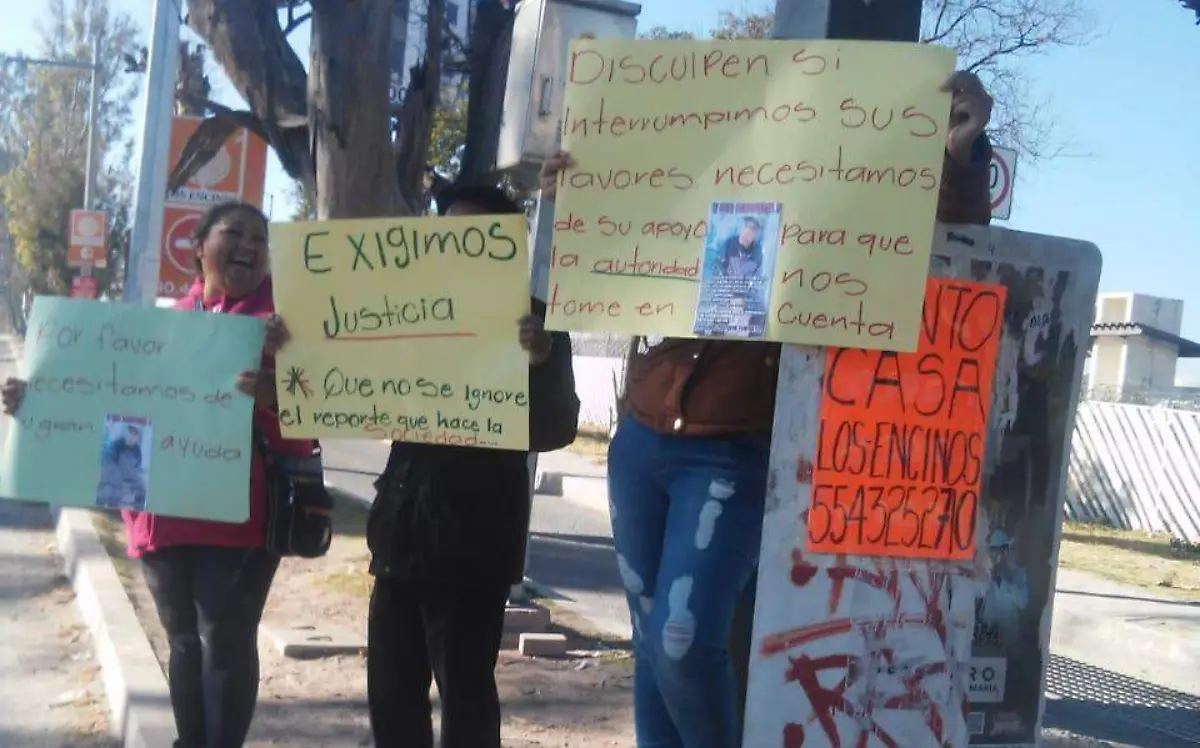 Por favor
necesitamos de
su gran
ayuda
EXIGIMOS
Justicia
* Que no se Ignore
el reporte que hace la
Sociedad....
DISCULPEN SI
Interrumpimos sus
lavores necesitamos
de su apoyo para que
la autoridad nos
tome en Cuenta
NTO
CASA
LOS-ENCINOS
5543252710
LOS ENCINOS